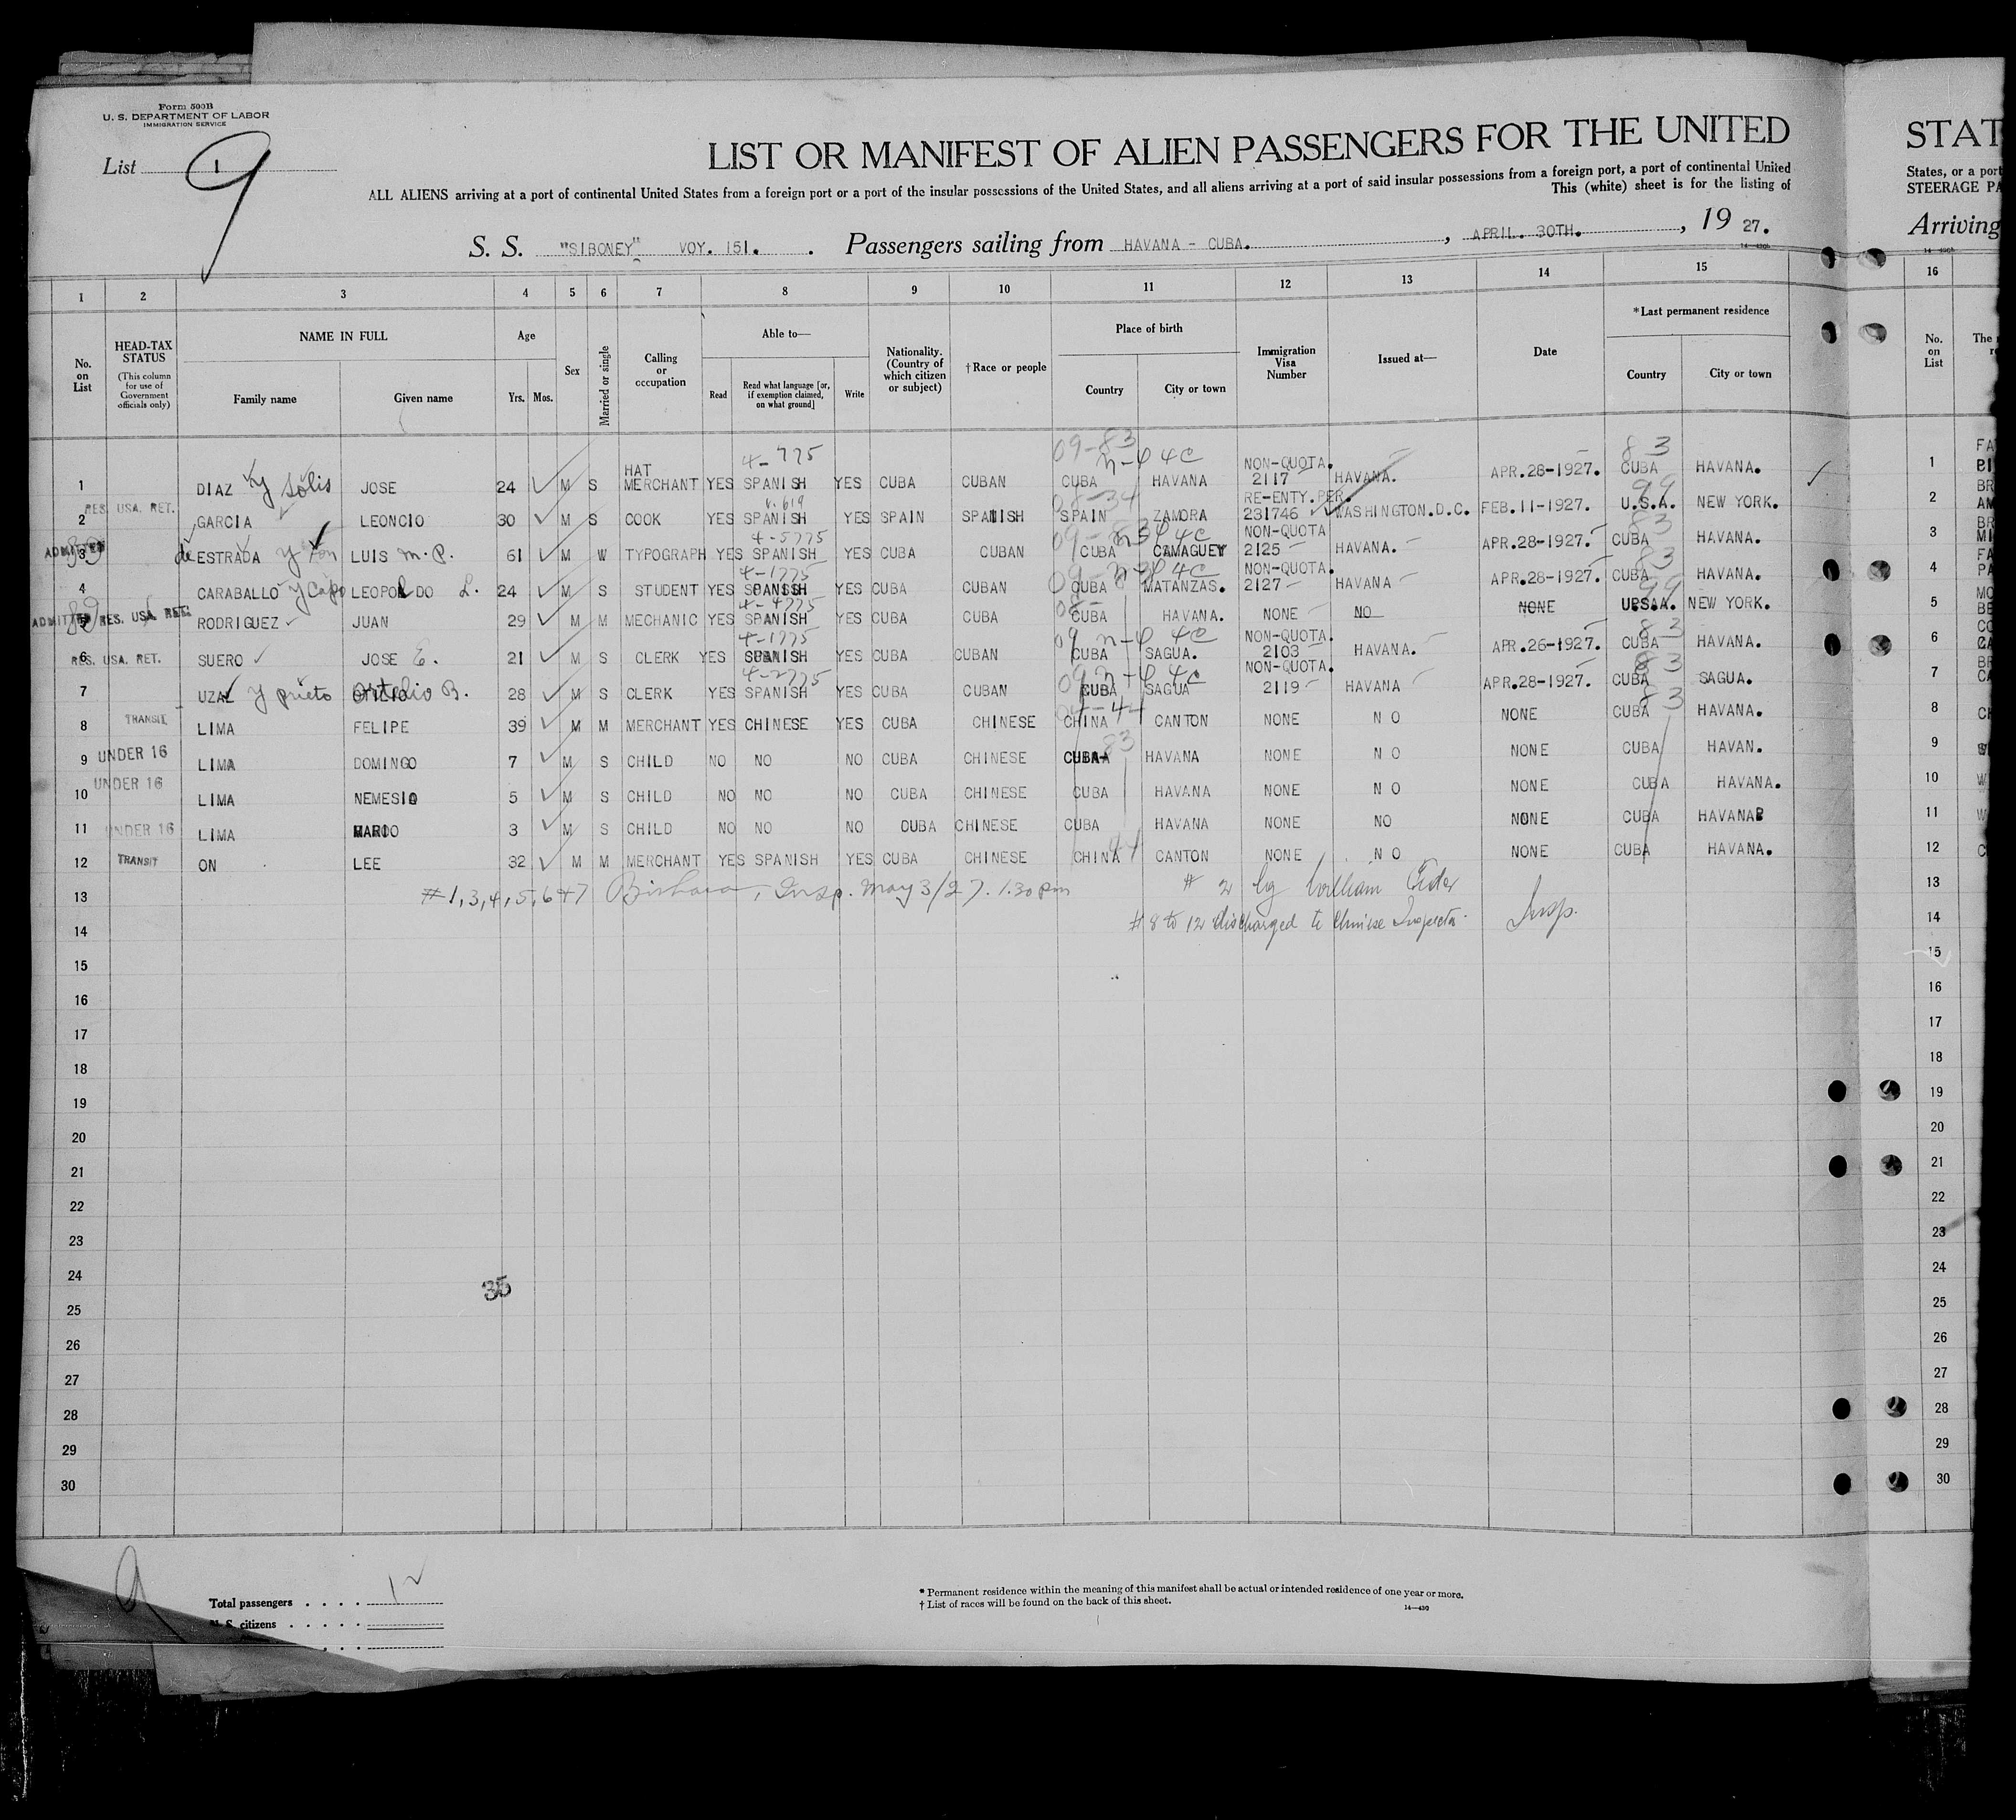 Form 500B
U. S. DEPARTMENT OF LABOR
IMMIGRATION SERVICE
List 1
9
LIST OR MANIFEST OF ALIEN PASSENGERS FOR THE UNITED
STAT
ALL ALIENS arriving at a port of continental United States from a foreign port or a port of the insular possessions of the United States, and all aliens arriving at a port of said insular possessions from a foreign port, a port of continental United
States, or a port
This (white) sheet is for the listing of
STEERAGE PA
S. S. "SIBONEY" VOY. 151. Passengers sailing from HAVANA - CUBA. , APRIL. 30TH. , 19 27.
Arriving
14-430b
1 2 3 4 5 6 7 8 9 10 11 12 13 14 15 16
No. on List
HEAD-TAX STATUS (This column for use of Government officials only)
NAME IN FULL
Family name
Given name
Age
Yrs. Mos.
Sex
Married or single
Calling or occupation
Able to—
Read
Read what language [or, if exemption claimed, on what ground]
Write
Nationality. (Country of which citizen or subject)
†Race or people
Place of birth
Country
City or town
Immigration Visa Number
Issued at—
Date
*Last permanent residence
Country
City or town
No. on List
4-775 09-83 n-4 4C 83
1 DIAZ y Solis JOSE 24 M S HAT MERCHANT YES SPANISH YES CUBA CUBAN CUBA HAVANA NON-QUOTA. 2117 HAVANA. APR.28-1927. CUBA HAVANA. 1
RES. USA. RET.
2 GARCIA LEONCIO 30 M S COOK YES SPANISH YES SPAIN SPANISH SPAIN ZAMORA RE-ENTY.PER. 231746 WASHINGTON.D.C. FEB.11-1927. U.S.A. NEW YORK. 2
4-5775
ADMITTED
3 de ESTRADA y LUIS M. P. 61 M W TYPOGRAPH YES SPANISH YES CUBA CUBAN CUBA CAMAGUEY NON-QUOTA 2125 HAVANA. APR.28-1927. CUBA HAVANA. 3
4-1775
4 CARABALLO y Capo LEOPOLDO L. 24 M S STUDENT YES SPANISH YES CUBA CUBAN CUBA MATANZAS. NON-QUOTA. 2127 HAVANA APR.28-1927. CUBA HAVANA. 4
4-4775
ADMITTED RES. USA. RET.
5 RODRIGUEZ JUAN 29 M M MECHANIC YES SPANISH YES CUBA CUBA CUBA HAVANA. NONE NO NONE U.S.A. NEW YORK. 5
4-1775 09 n-4 4C 83
RES. USA. RET.
6 SUERO JOSE E. 21 M S CLERK YES SPANISH YES CUBA CUBAN CUBA SAGUA. NON-QUOTA. 2103 HAVANA. APR.26-1927. CUBA HAVANA. 6
4-2775 09 n-4 4C 83
7 UZAL y prieto B. 28 M S CLERK YES SPANISH YES CUBA CUBAN CUBA SAGUA NON-QUOTA. 2119 HAVANA APR.28-1927. CUBA SAGUA. 7
8 TRANSIT LIMA FELIPE 39 M M MERCHANT YES CHINESE YES CUBA CHINESE CHINA CANTON NONE NO NONE CUBA HAVANA. 8
9 UNDER 16 LIMA DOMINGO 7 M S CHILD NO NO NO CUBA CHINESE CUBA HAVANA NONE NO NONE CUBA HAVAN. 9
10 UNDER 16 LIMA NEMESIO 5 M S CHILD NO NO NO CUBA CHINESE CUBA HAVANA NONE NO NONE CUBA HAVANA. 10
11 UNDER 16 LIMA MARIO 3 M S CHILD NO NO NO CUBA CHINESE CUBA HAVANA NONE NO NONE CUBA HAVANA 11
12 TRANSIT ON LEE 32 M M MERCHANT YES SPANISH YES CUBA CHINESE CHINA CANTON NONE NO NONE CUBA HAVANA. 12
13 #1,3,4,5,6+7 Insp. May 3/27. 1.30 pm # 2 by William Insp. 13
14 # 8 to 12 discharged to Chinese Inspector 14
15 15
16 16
17 17
18 18
19 19
20 20
21 21
22 22
23 23
24 24
35
25 25
26 26
27 27
28 28
29 29
30 30
9
Total passengers . . . . 12
U. S. citizens . . . . .
* Permanent residence within the meaning of this manifest shall be actual or intended residence of one year or more.
† List of races will be found on the back of this sheet.
14-430